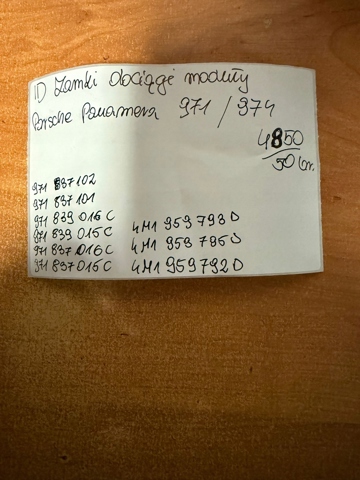 1D Zamki obciągi moduły
Porsche Panamera 971 / 974
4850
50 br.
971 837 102
971 837 101
971 839 016 C
971 839 015 C 4M1 959 793 D
971 837 016 C 4M1 959 795 D
971 837 015 C 4M1 959792 D